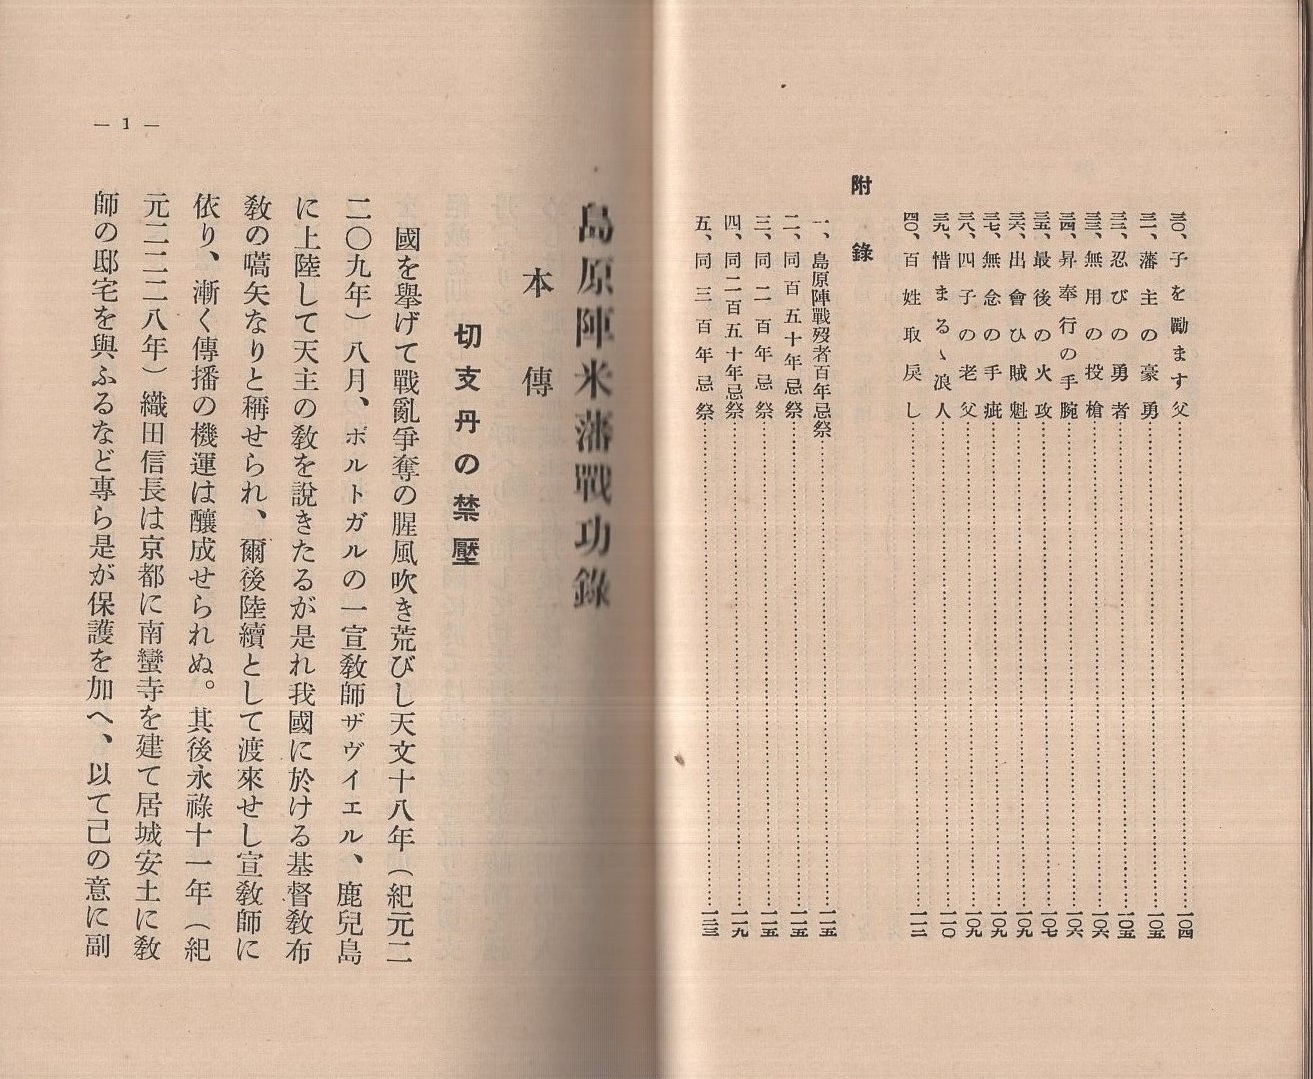 三〇、子を勵ます父…一〇四
三一、藩主の豪勇…一〇五
三二、忍びの勇者…一〇五
三三、無用の投槍…一〇六
三四、昇奉行の手腕…一〇六
三五、最後の火攻…一〇七
三六、出會ひ賊魁…一〇九
三七、無念の手疵…一〇九
三八、四子の老父…一〇九
三九、惜まるゝ浪人…一一〇
四〇、百姓取戻し…一一二
附錄
一、島原陣戰歿者百年忌祭…一一五
二、同百五十年忌祭…一一五
三、同二百年忌祭…一一五
四、同二百五十年忌祭…一一九
五、同三百年忌祭…一二三
島原陣米藩戰功錄
本傳
切支丹の禁壓
國を擧げて戰亂爭奪の腥風吹き荒びし天文十八年(紀元二
二〇九年)八月、ポルトガルの一宣敎師ザヴイエル、鹿兒島
に上陸して天主の敎を說きたるが是れ我國に於ける基督敎布
敎の嚆矢なりと稱せられ、爾後陸續として渡來せし宣敎師に
依り、漸く傳播の機運は釀成せられぬ。其後永祿十一年(紀
元二二二八年)織田信長は京都に南蠻寺を建て居城安土に敎
師の邸宅を與ふるなど專ら是が保護を加へ、以て己の意に副
— 1 —